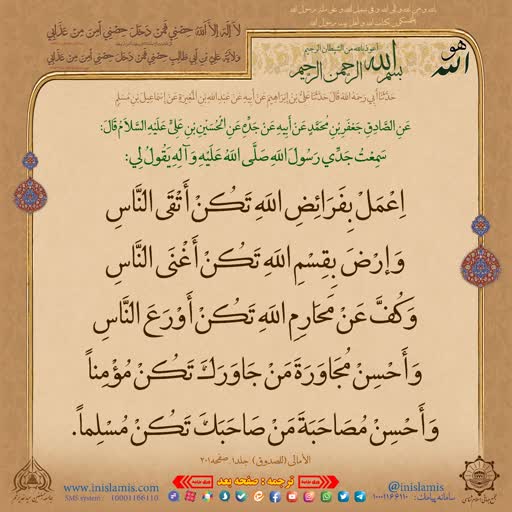 لا إِلهَ إِلاَّ اللهُ حِصْنِي فَمَنْ دَخَلَ حِصْنِي أَمِنَ مِنْ عَذَابِي
وَلايَةُ عَلِيِّ بْنِ أَبِي طَالِبٍ حِصْنِي فَمَنْ دَخَلَ حِصْنِي أَمِنَ مِنْ عَذَابِي
هو
الله
أعوذ بالله من الشیطان الرجیم
بسم الله الرحمن الرحیم
حَدَّثَنَا أَبِي رَحِمَهُ اللهُ قَالَ حَدَّثَنَا عَلِيُّ بْنُ إِبْرَاهِيمَ عَنْ أَبِيهِ عَنْ عَبْدِ اللهِ بْنِ الْمُغِيرَةِ عَنْ إِسْمَاعِيلَ بْنِ مُسْلِمٍ
عَنِ الصَّادِقِ جَعْفَرِ بْنِ مُحَمَّدٍ عَنْ أَبِيهِ عَنْ جَدِّهِ عَنِ الْحُسَيْنِ بْنِ عَلِيٍّ عَلَيْهِ السَّلَامُ قَالَ:
سَمِعْتُ جَدِّي رَسُولَ اللهِ صَلَّى اللهُ عَلَيْهِ وَآلِهِ يَقُولُ لِي:
اِعْمَلْ بِفَرَائِضِ اللهِ تَكُنْ أَتْقَى النَّاسِ
وَارْضَ بِقِسْمِ اللهِ تَكُنْ أَغْنَى النَّاسِ
وَكُفَّ عَنْ مَحَارِمِ اللهِ تَكُنْ أَوْرَعَ النَّاسِ
وَأَحْسِنْ مُجَاوَرَةَ مَنْ جَاوَرَكَ تَكُنْ مُؤْمِناً
وَأَحْسِنْ مُصَاحَبَةَ مَنْ صَاحَبَكَ تَكُنْ مُسْلِماً.
الأمالی (للصدوق) جلد۱ صفحه۲۰۱
ورق بزنید ترجمه : صفحه بعد ورق بزنید
@inislamis
سامانه پیامک: ۱۰۰۰۱۱۶۶۱۱۰
www.inislamis.com
SMS system: 10001166110